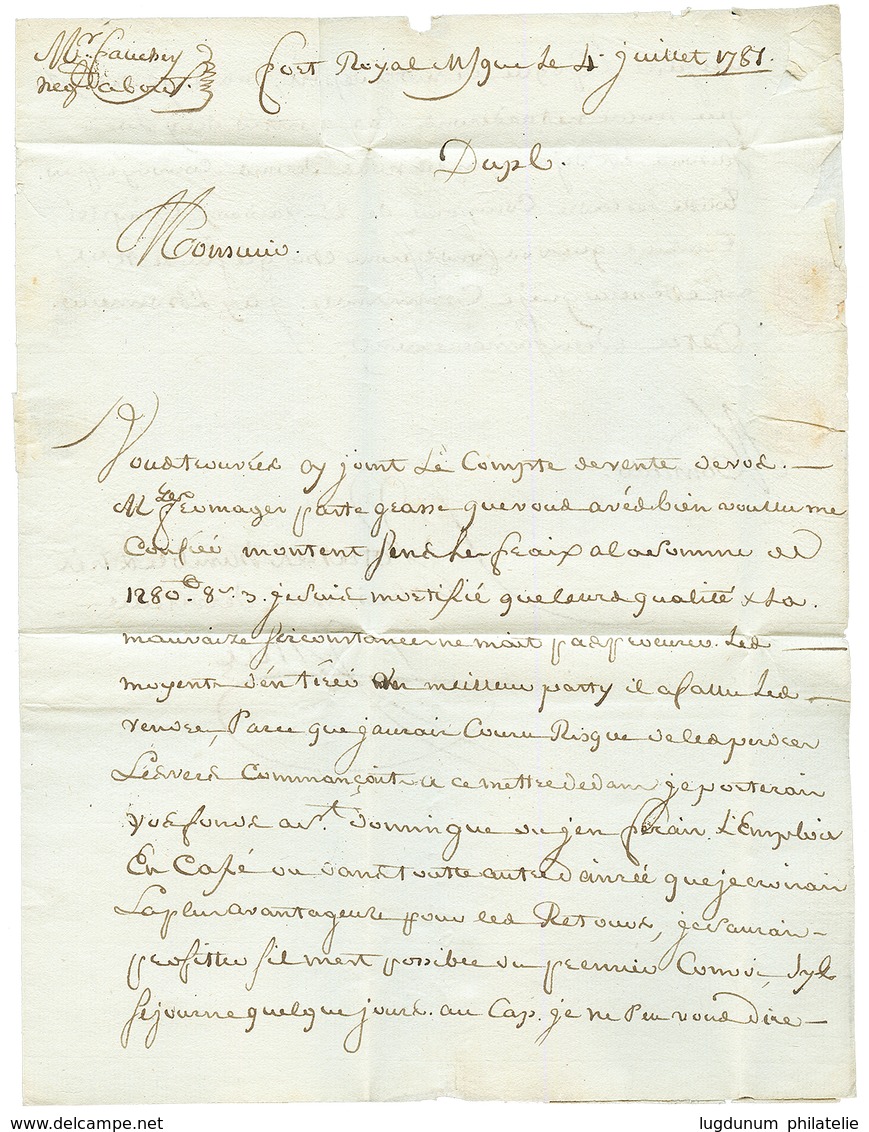 Mr fauchey
negt a bord.
fort Royal Mque Le 4 juillet 1781.
Dupl.
Monsieur.
Vous trouverés cy joint Le Compte de vente de vos. —
Mses fromager patte grasse que vous avés bien voullu me
Confier montent sens Les fraix a la somme de
1280# 8s 3. je suis mortifié que leurs qualité & La.
mauvaize sirconstance ne mait pas procurer. Les —
moyents d'en tirer un meilleur party il a fallu Les —
vendre, Parce que jaurair Couru Risque de les perdre
Les vers Commançoit a ce mettre dedans je porterair
vos fonds a St. domingue ou jen ferair L'Emploie
En Café ou dans toutte autre dainrée que je croirair
La plus avantageuze pour les Retours, je saurair —
profitter sil mest possible du premier Convoi, syl
séjourne quelque jours. au Cap. je ne Peu vous dire —
www.delcampe.net
lugdunum philatelie